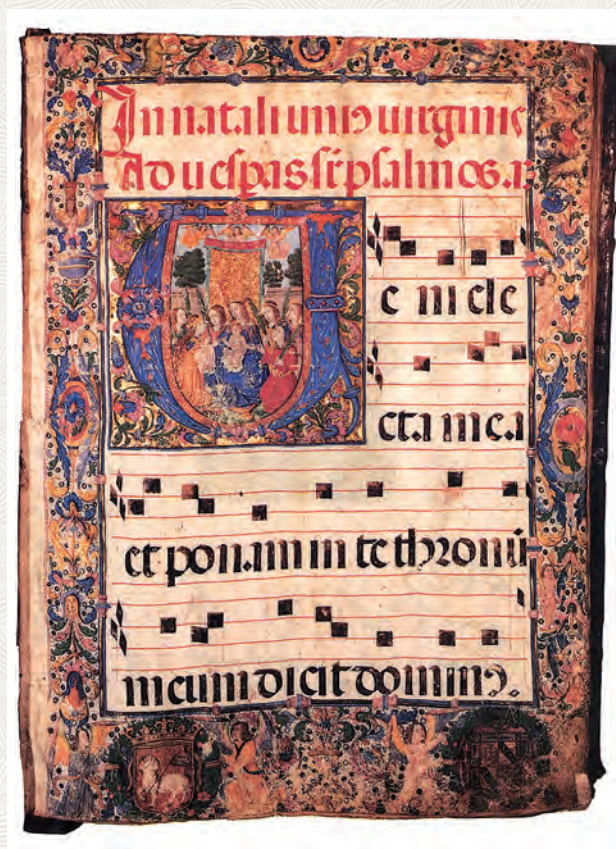 In natali uniꝰ uirginis
Ad uespas sr̄ psalmos. a.
Veni ele
cta mea
et ponam in te thronū
meum dicit dominꝰ.